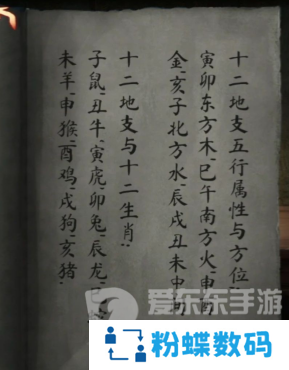 十二地支五行属性与方位
寅卯东方木、巳午南方火、申酉
金、亥子北方水、辰戌丑未中
十二地支与十二生肖
子鼠、丑牛、寅虎、卯兔、辰龙、巳
未羊、申猴、酉鸡、戌狗、亥猪
爱东东手游
粉蝶数码